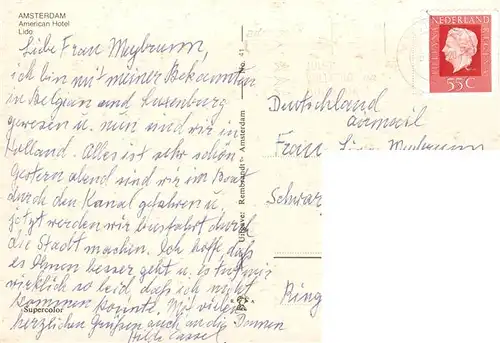 AMSTERDAM
American Hotel
Lido
Liebe Frau Meybrunn,
ich bin mit meiner Bekannten
in Belgien und Luxenburg
gewesen u. nun sind wir in
Holland. Alles ist sehr schön
Gestern abend sind wir im Boot
durch den Kanal gefahren u.
jetzt werden wir busfahrt durch
die Stadt machen. Ich hoffe daß
es Ihnen besser geht u. es tut mir
wirklich so leid, daß ich nicht
kommen konnte. Mit vielen
herzlichen Grüßen auch an die Damen
Hilde Cassel
Supercolor
Uitgave: Rembrandt - Amsterdam No. 41
NEDERLAND
JULIANA REGINA
55C
Deutschland
airmail
Frau
Schwar
Ring